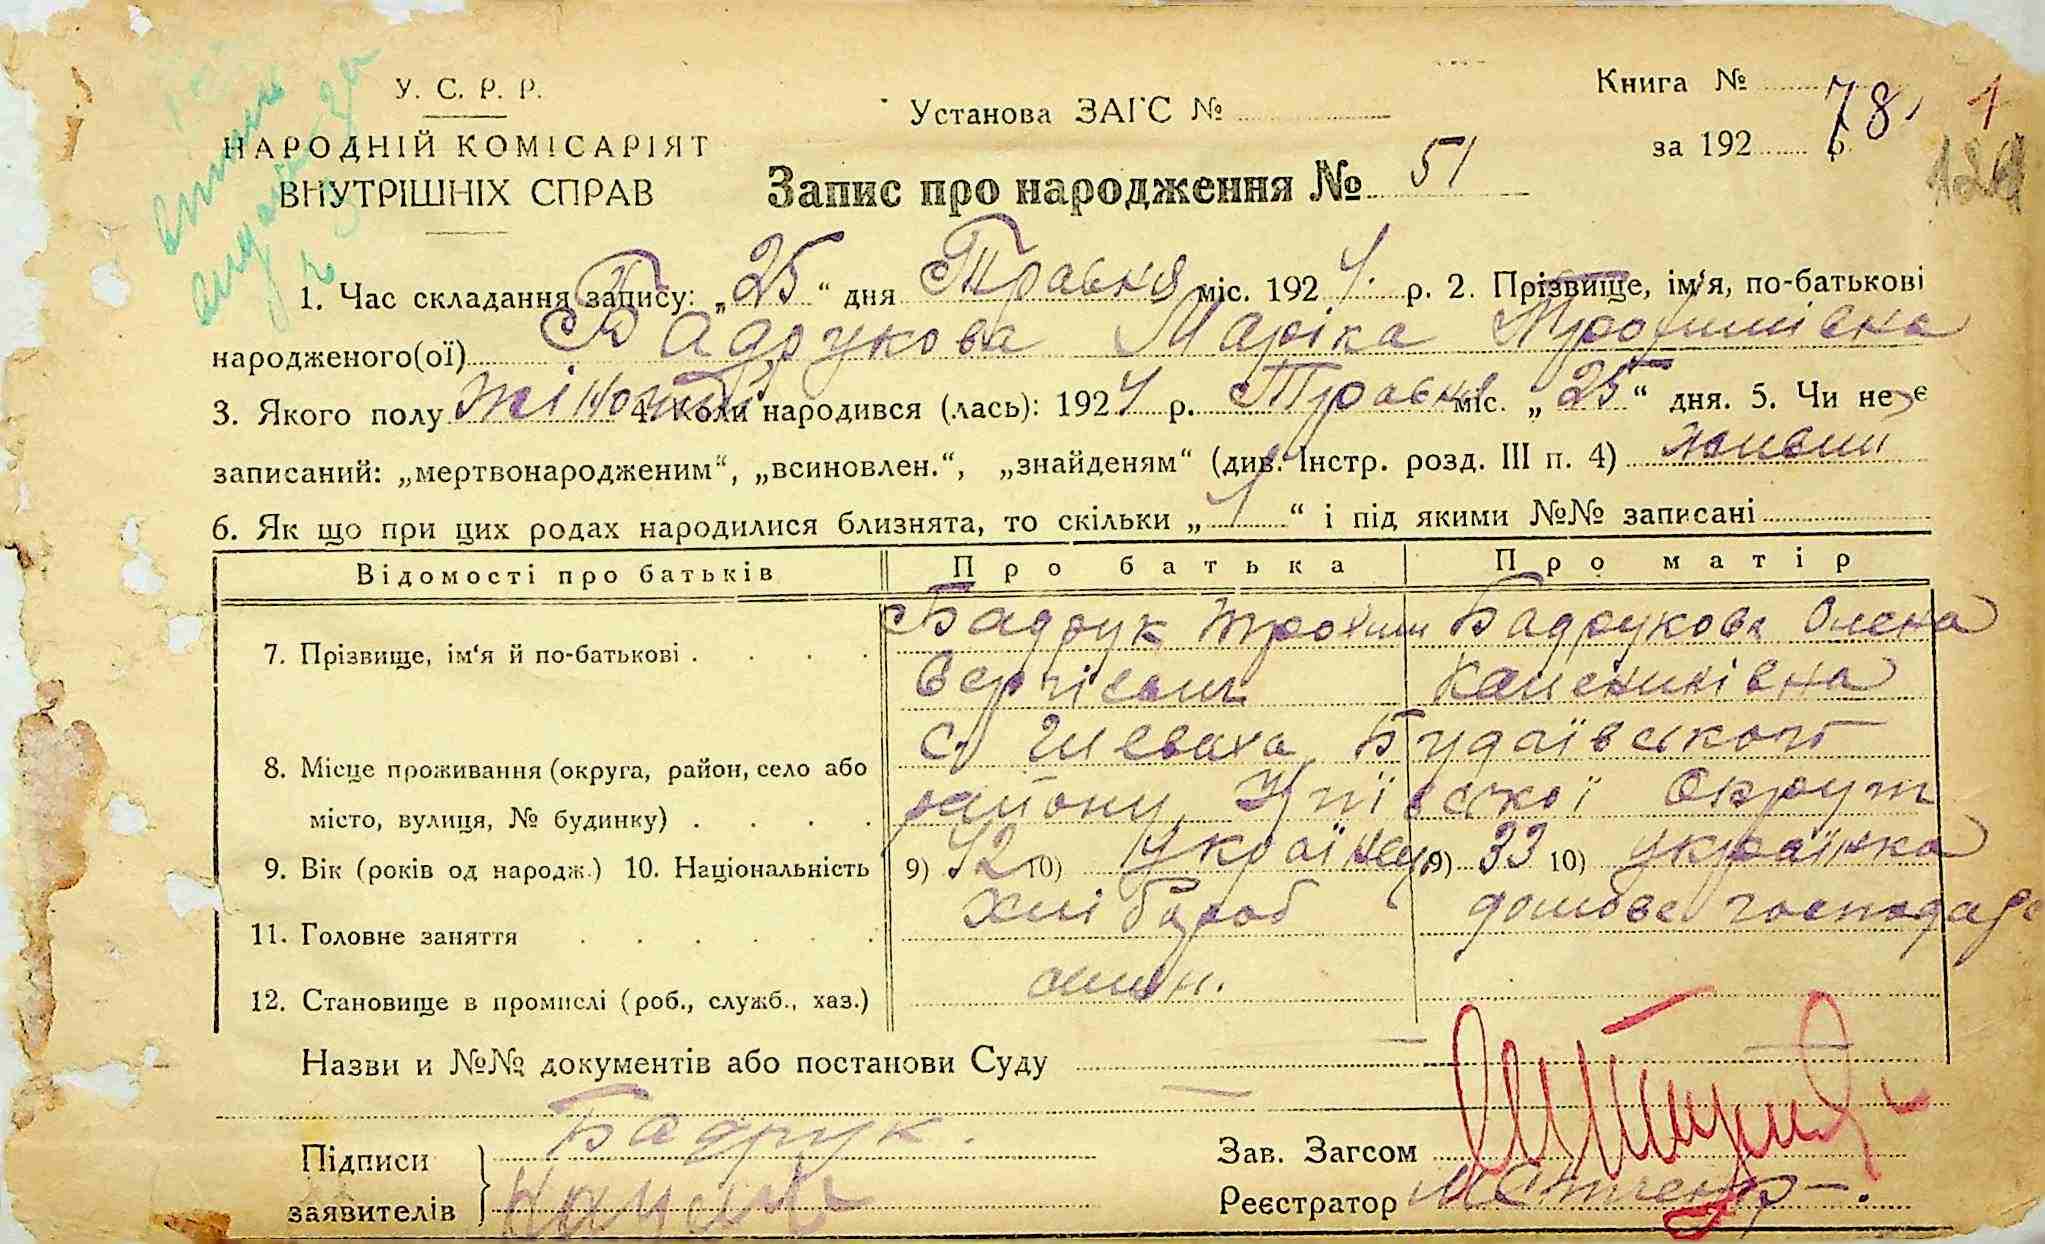 У. С. Р. Р.
НАРОДНІЙ КОМІСАРІЯТ
ВНУТРІШНІХ СПРАВ
Установа ЗАГС №
Книга № 78
за 192 р.
1
Запис про народження № 51
1. Час складання запису: „25“ дня Травня міс. 1924 р. 2. Прізвище, ім'я, по-батькові
народженого(ої) Бадрукова Маріка Трофимівна
3. Якого полу жіночої 4. Коли народився (лась): 1924 р. Травня міс. „25“ дня. 5. Чи не є
записаний: „мертвонародженим“, „всиновлен.“, „знайденям“ (див. Інстр. розд. III п. 4) живий
6. Як що при цих родах народилися близнята, то скільки „1“ і під якими №№ записані
Відомості про батьків Про батька Про матір
7. Прізвище, ім'я й по-батькові . . . . Бадрук Трохим Бадрукова Олена
Сергієвич
8. Місце проживання (округа, район, село або с. Боярського
місто, вулиця, № будинку) . . . . району Київської Округи
9. Вік (років од народж.) 10. Національність 9) 42 10) Українец 9) 33 10) українка
11. Головне заняття . . . . . . Хлібороб домове господар
12. Становище в промислі (роб., служб., хаз.)
Назви и №№ документів або постанови Суду
Підписи Бадрук.
заявителів
Зав. Загсом
Реєстратор